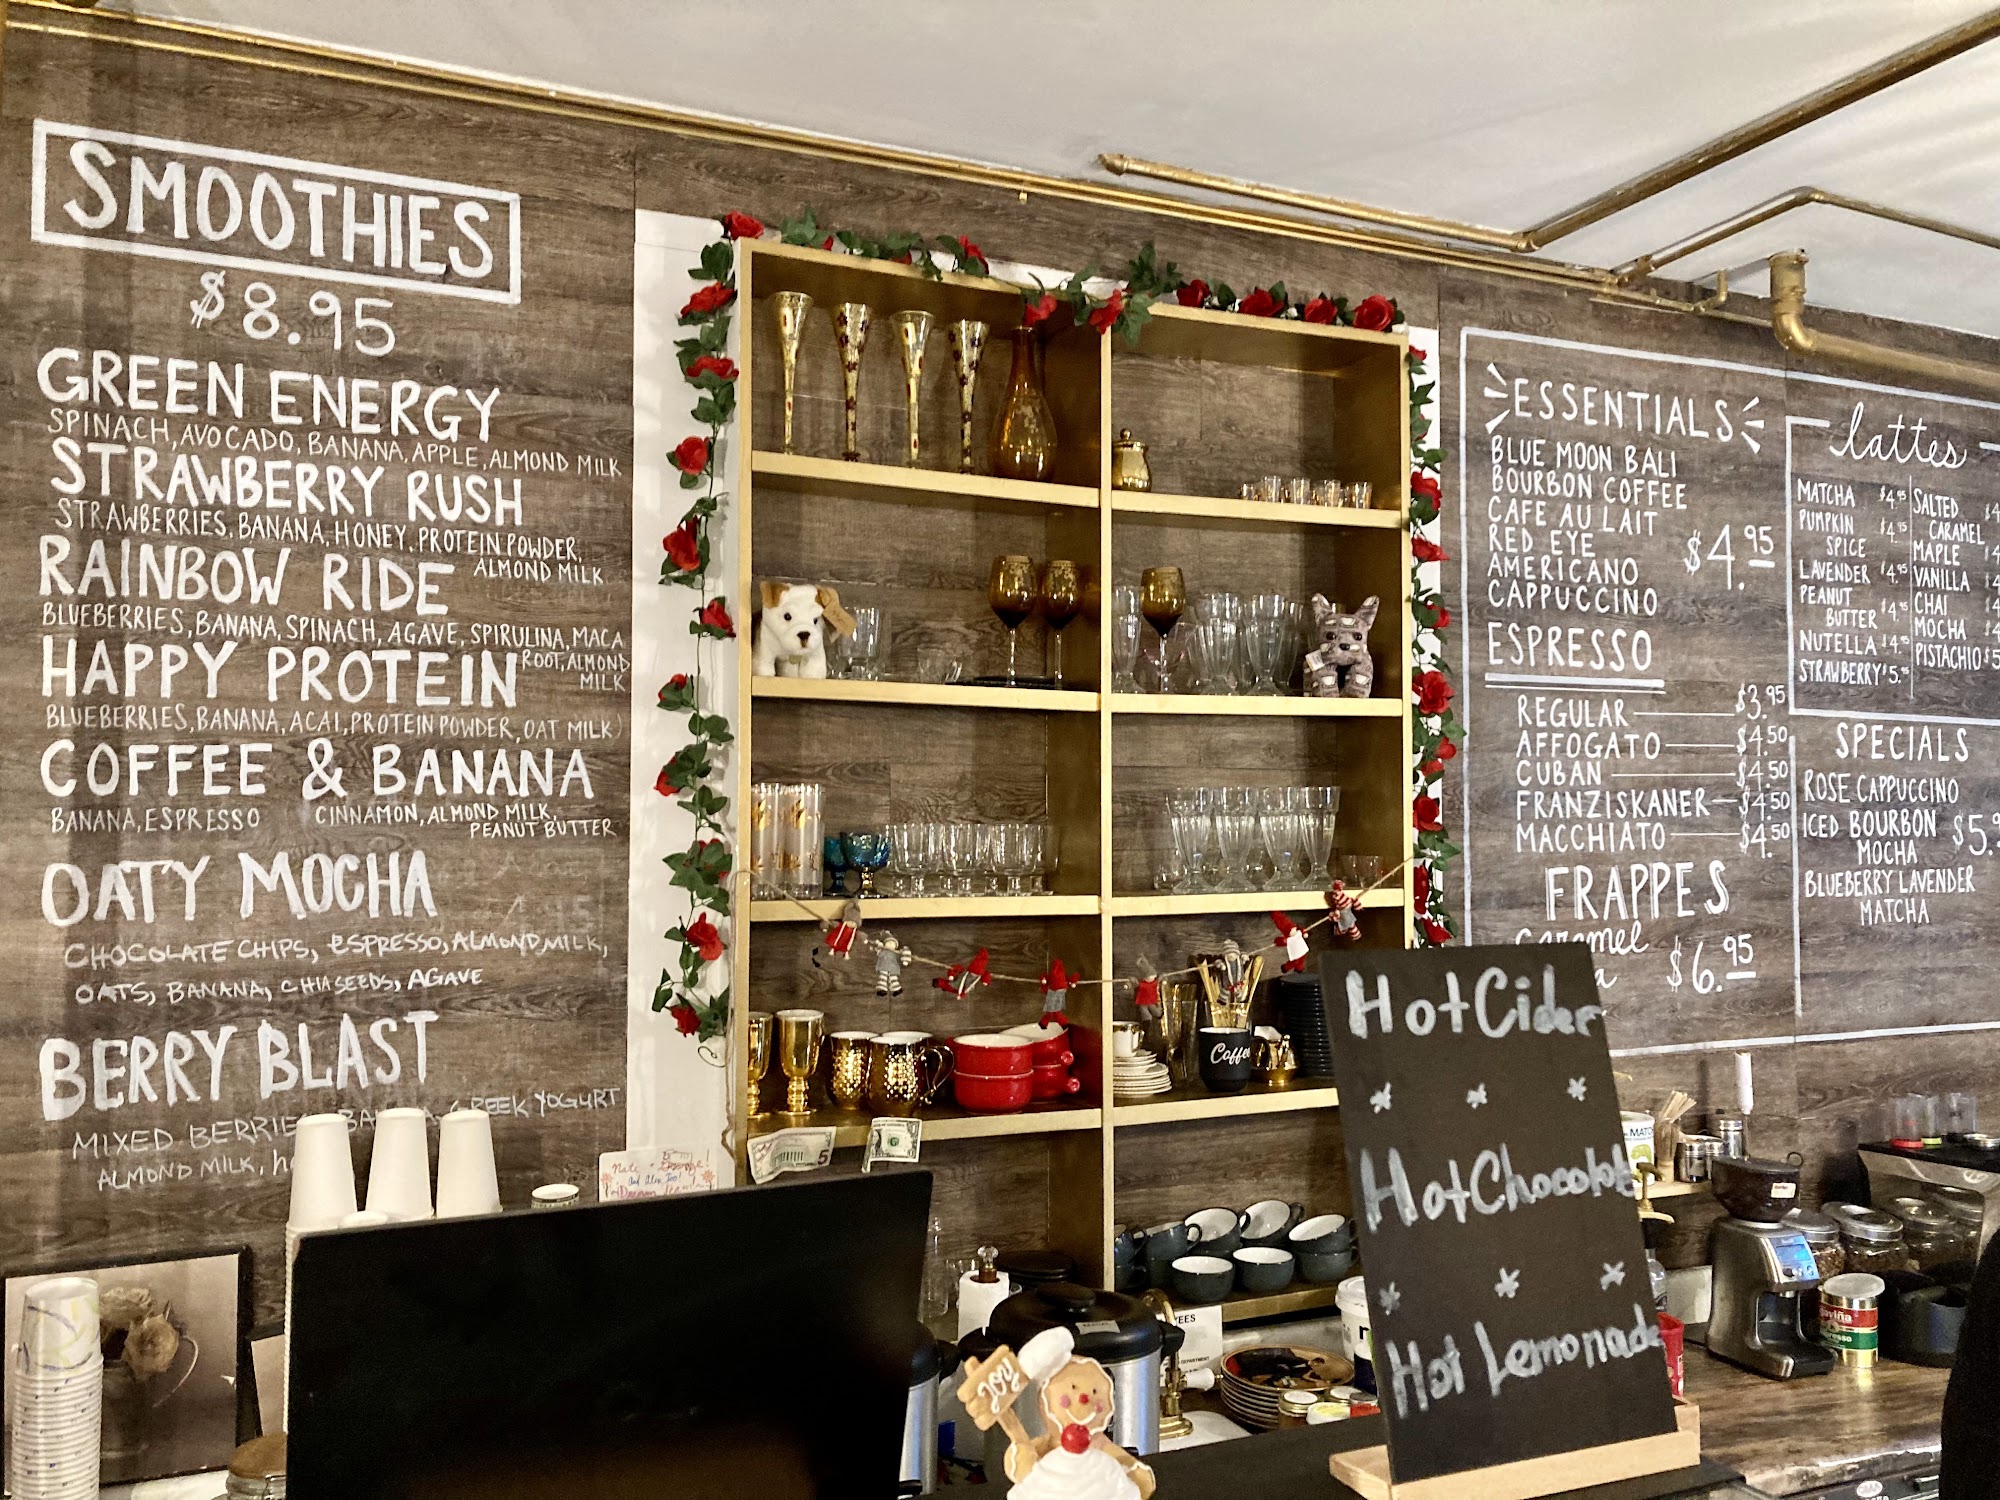 SMOOTHIES
$8.95
GREEN ENERGY
SPINACH, AVOCADO, BANANA, APPLE, ALMOND MILK
STRAWBERRY RUSH
STRAWBERRIES, BANANA, HONEY, PROTEIN POWDER,
ALMOND MILK
RAINBOW RIDE
BLUEBERRIES, BANANA, SPINACH, AGAVE, SPIRULINA, MACA
ROOT, ALMOND
MILK
HAPPY PROTEIN
BLUEBERRIES, BANANA, ACAI, PROTEIN POWDER, OAT MILK)
COFFEE & BANANA
BANANA, ESPRESSO CINNAMON, ALMOND MILK,
PEANUT BUTTER
OATY MOCHA
CHOCOLATE CHIPS, ESPRESSO, ALMOND MILK,
OATS, BANANA, CHIA SEEDS, AGAVE
BERRY BLAST
MIXED BERRIE GREEK YOGURT
ALMOND MILK,
ESSENTIALS
BLUE MOON BALI
BOURBON COFFEE
CAFE AU LAIT
RED EYE
AMERICANO
CAPPUCCINO
$4.95
ESPRESSO
REGULAR $3.95
AFFOGATO $4.50
CUBAN $4.50
FRANZISKANER $4.50
MACCHIATO $4.50
FRAPPES
caramel
$6.95
lattes
MATCHA $4.95
PUMPKIN
SPICE $4.95
LAVENDER $4.95
PEANUT
BUTTER $4.95
NUTELLA $4.95
STRAWBERRY $5.95
SALTED
CARAMEL $4
MAPLE $4
VANILLA $4
CHAI $4
MOCHA $4
PISTACHIO $5
SPECIALS
ROSE CAPPUCCINO
ICED BOURBON
MOCHA
BLUEBERRY LAVENDER
MATCHA
$5.9
Hot Cider
Hot Chocolate
Hot Lemonade
Coffee
JOY
5
and Alex Too!
MATC
espresso